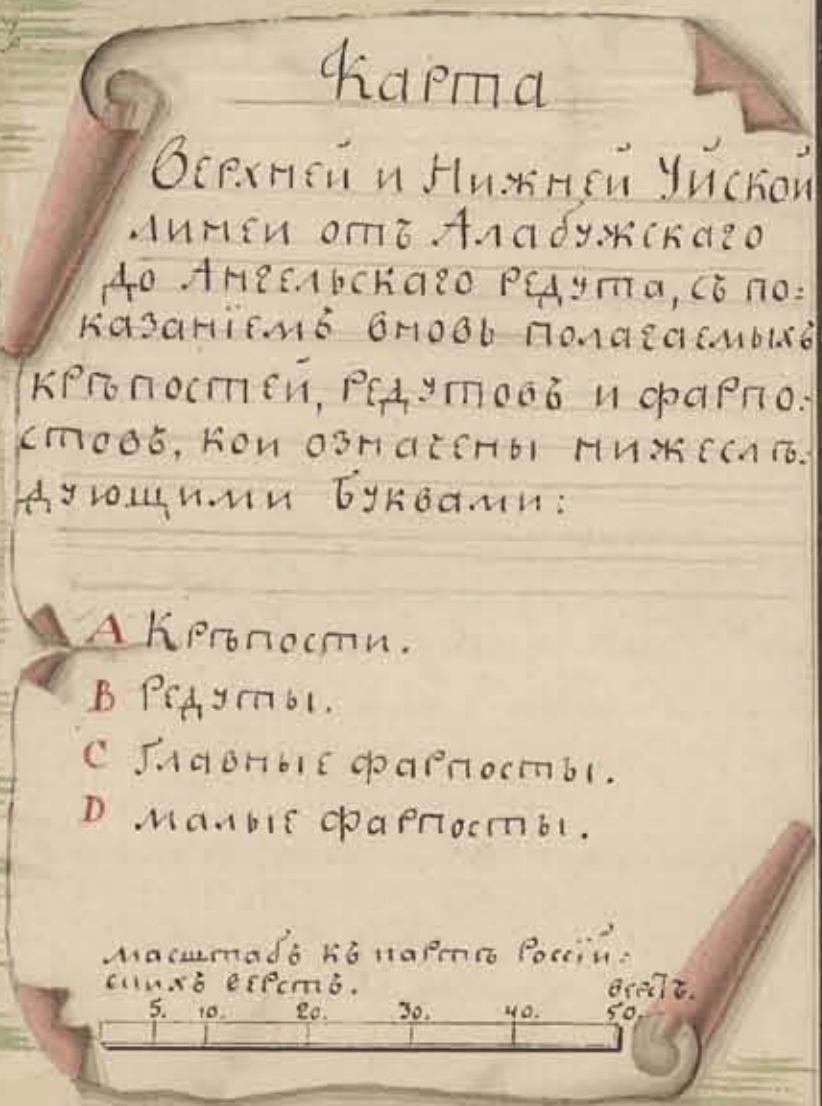 Карта
Верхней и Нижней Уйской
линеи отъ Алабужскаго
до Ангельскаго редута, съ по=
казанїемъ вновь полагаемыхъ
крѣпостей, редутовъ и фарпо=
стовъ, кои означены нижеслѣ=
дующими буквами:
A Крѣпости.
B Редуты.
C Главные фарпосты.
D малые фарпосты.
масштабъ къ картѣ Россїй=
скихъ верстъ.
верстъ.
5. 10. 20. 30. 40. 50.